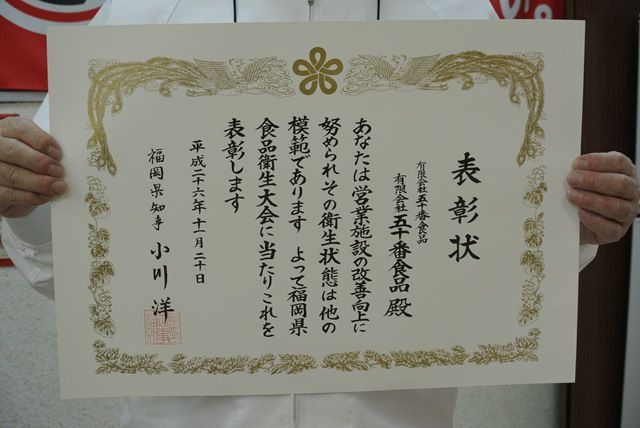 表彰状
有限会社五十番食品
有限会社 五十番食品 殿
あなたは営業施設の改善向上に
努められその衛生状態は他の
模範であります よって福岡県
食品衛生大会に当たりこれを
表彰します
平成二十六年十一月二十日
福岡県知事 小川 洋